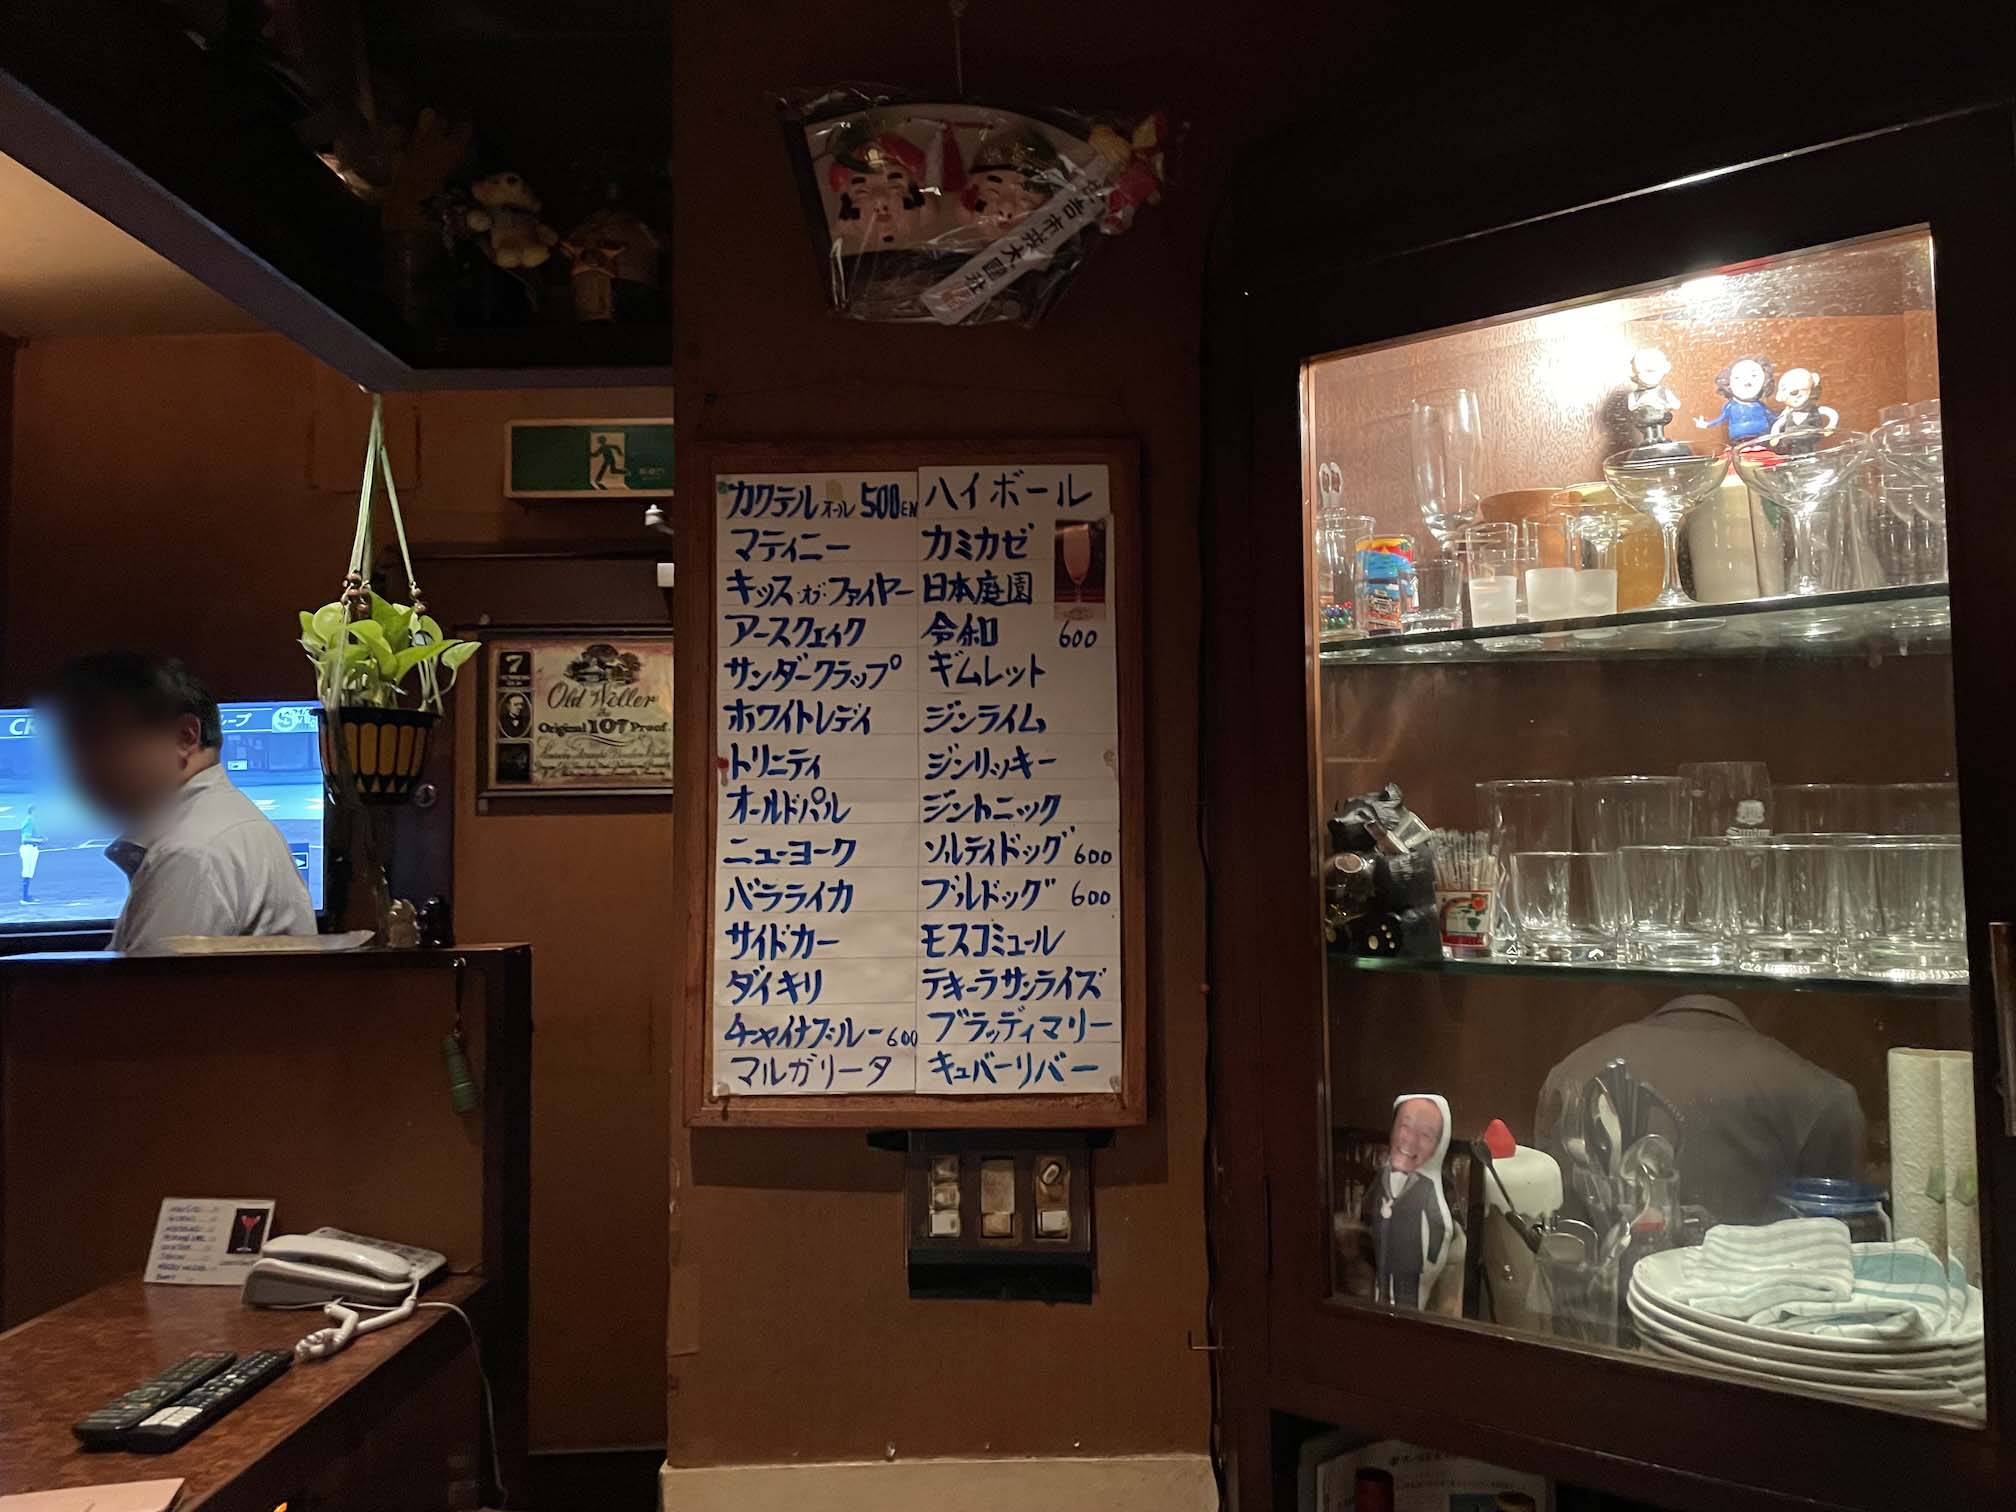 カクテル オール 500EN
マティニー
キッス・オブ・ファイヤー
アースクェイク
サンダークラップ
ホワイトレディ
トリニティ
オールドパル
ニューヨーク
バラライカ
サイドカー
ダイキリ
チャイナブルー 600
マルガリータ
ハイボール
カミカゼ
日本庭園
令和 600
ギムレット
ジンライム
ジンリッキー
ジントニック
ソルティドッグ 600
ブルドッグ 600
モスコミュール
テキーラサンライズ
ブラッディマリー
キューバーリバー
7
Old Weller
The
Original 107 Proof
Suntory